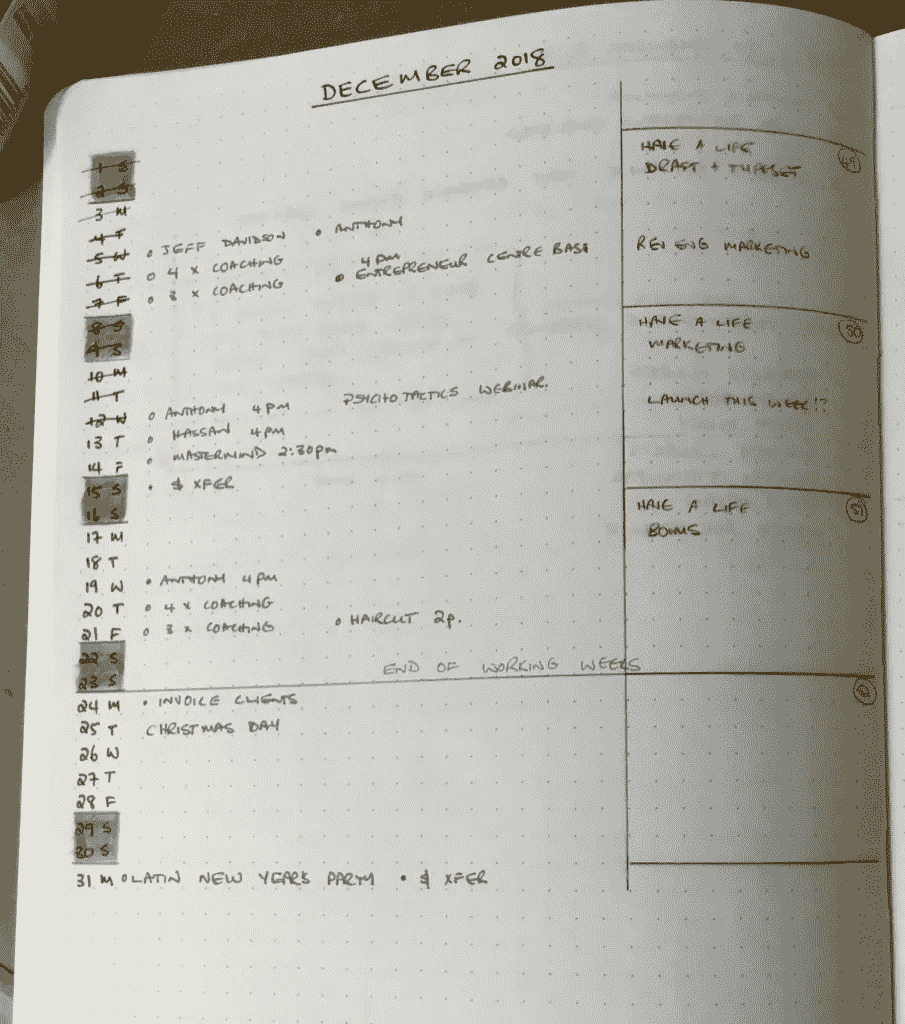 DECEMBER 2018
1 S
2 S
3 M
4 T
5 W • JEFF DAVIDSON • ANTHONY
6 T o 4 X COACHING 4 PM
7 F o 3 X COACHING • ENTREPRENEUR CENTRE BASH
8 S
9 S
10 M
11 T
12 W o ANTHONY 4 PM PSYCHOTACTICS WEBINAR.
13 T • HASSAN 4 PM
14 F • MASTERMIND 2:30pm
15 S • $ XFER
16 S
17 M
18 T
19 W • ANTHONY 4 PM
20 T o 4 X COACHING
21 F o 3 X COACHING • HAIRCUT 2p.
22 S
23 S END OF WORKING WEEKS
24 M • INVOICE CLIENTS
25 T CHRISTMAS DAY
26 W
27 T
28 F
29 S
30 S
31 M o LATIN NEW YEARS PARTY • $ XFER
HAVE A LIFE 49
DRAFT + TYPESET
REV ENG MARKETING
HAVE A LIFE 50
MARKETING
LAUNCH THIS WEEK!?
HAVE A LIFE 51
BONUS